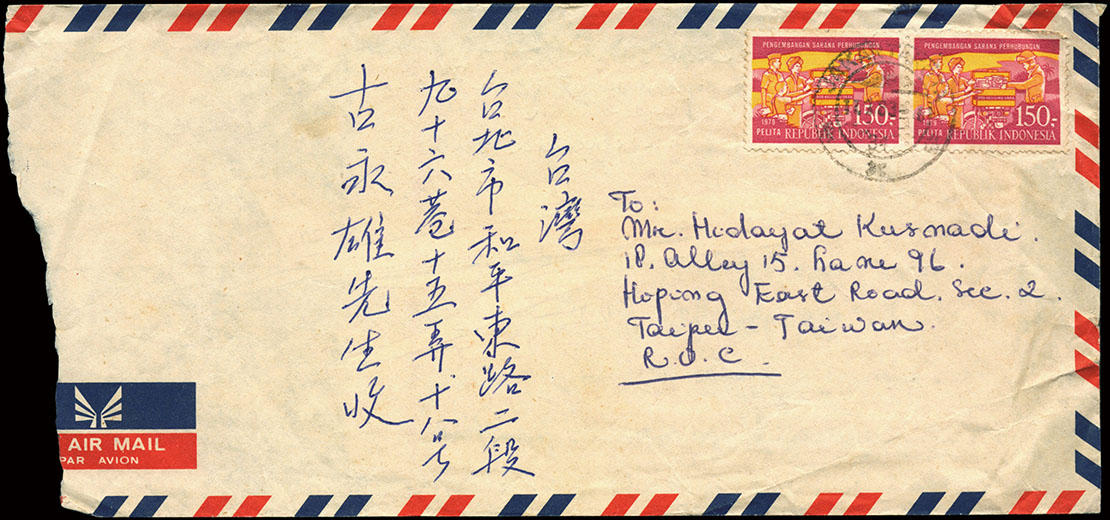 PENGEMBANGAN SARANA PERHUBUNGAN
1979
150,-
PELITA REPUBLIK INDONESIA
PENGEMBANGAN SARANA PERHUBUNGAN
1979
150,-
PELITA REPUBLIK INDONESIA
台灣
台北市和平東路二段
九十六巷十五弄十八号
古永雄先生收
To:
Mr. Hidayat Kusnadi.
18. Alley 15. Lane 96.
Hoping East Road. Sec. 2.
Taipei - Taiwan.
R.O.C.
AIR MAIL
PAR AVION